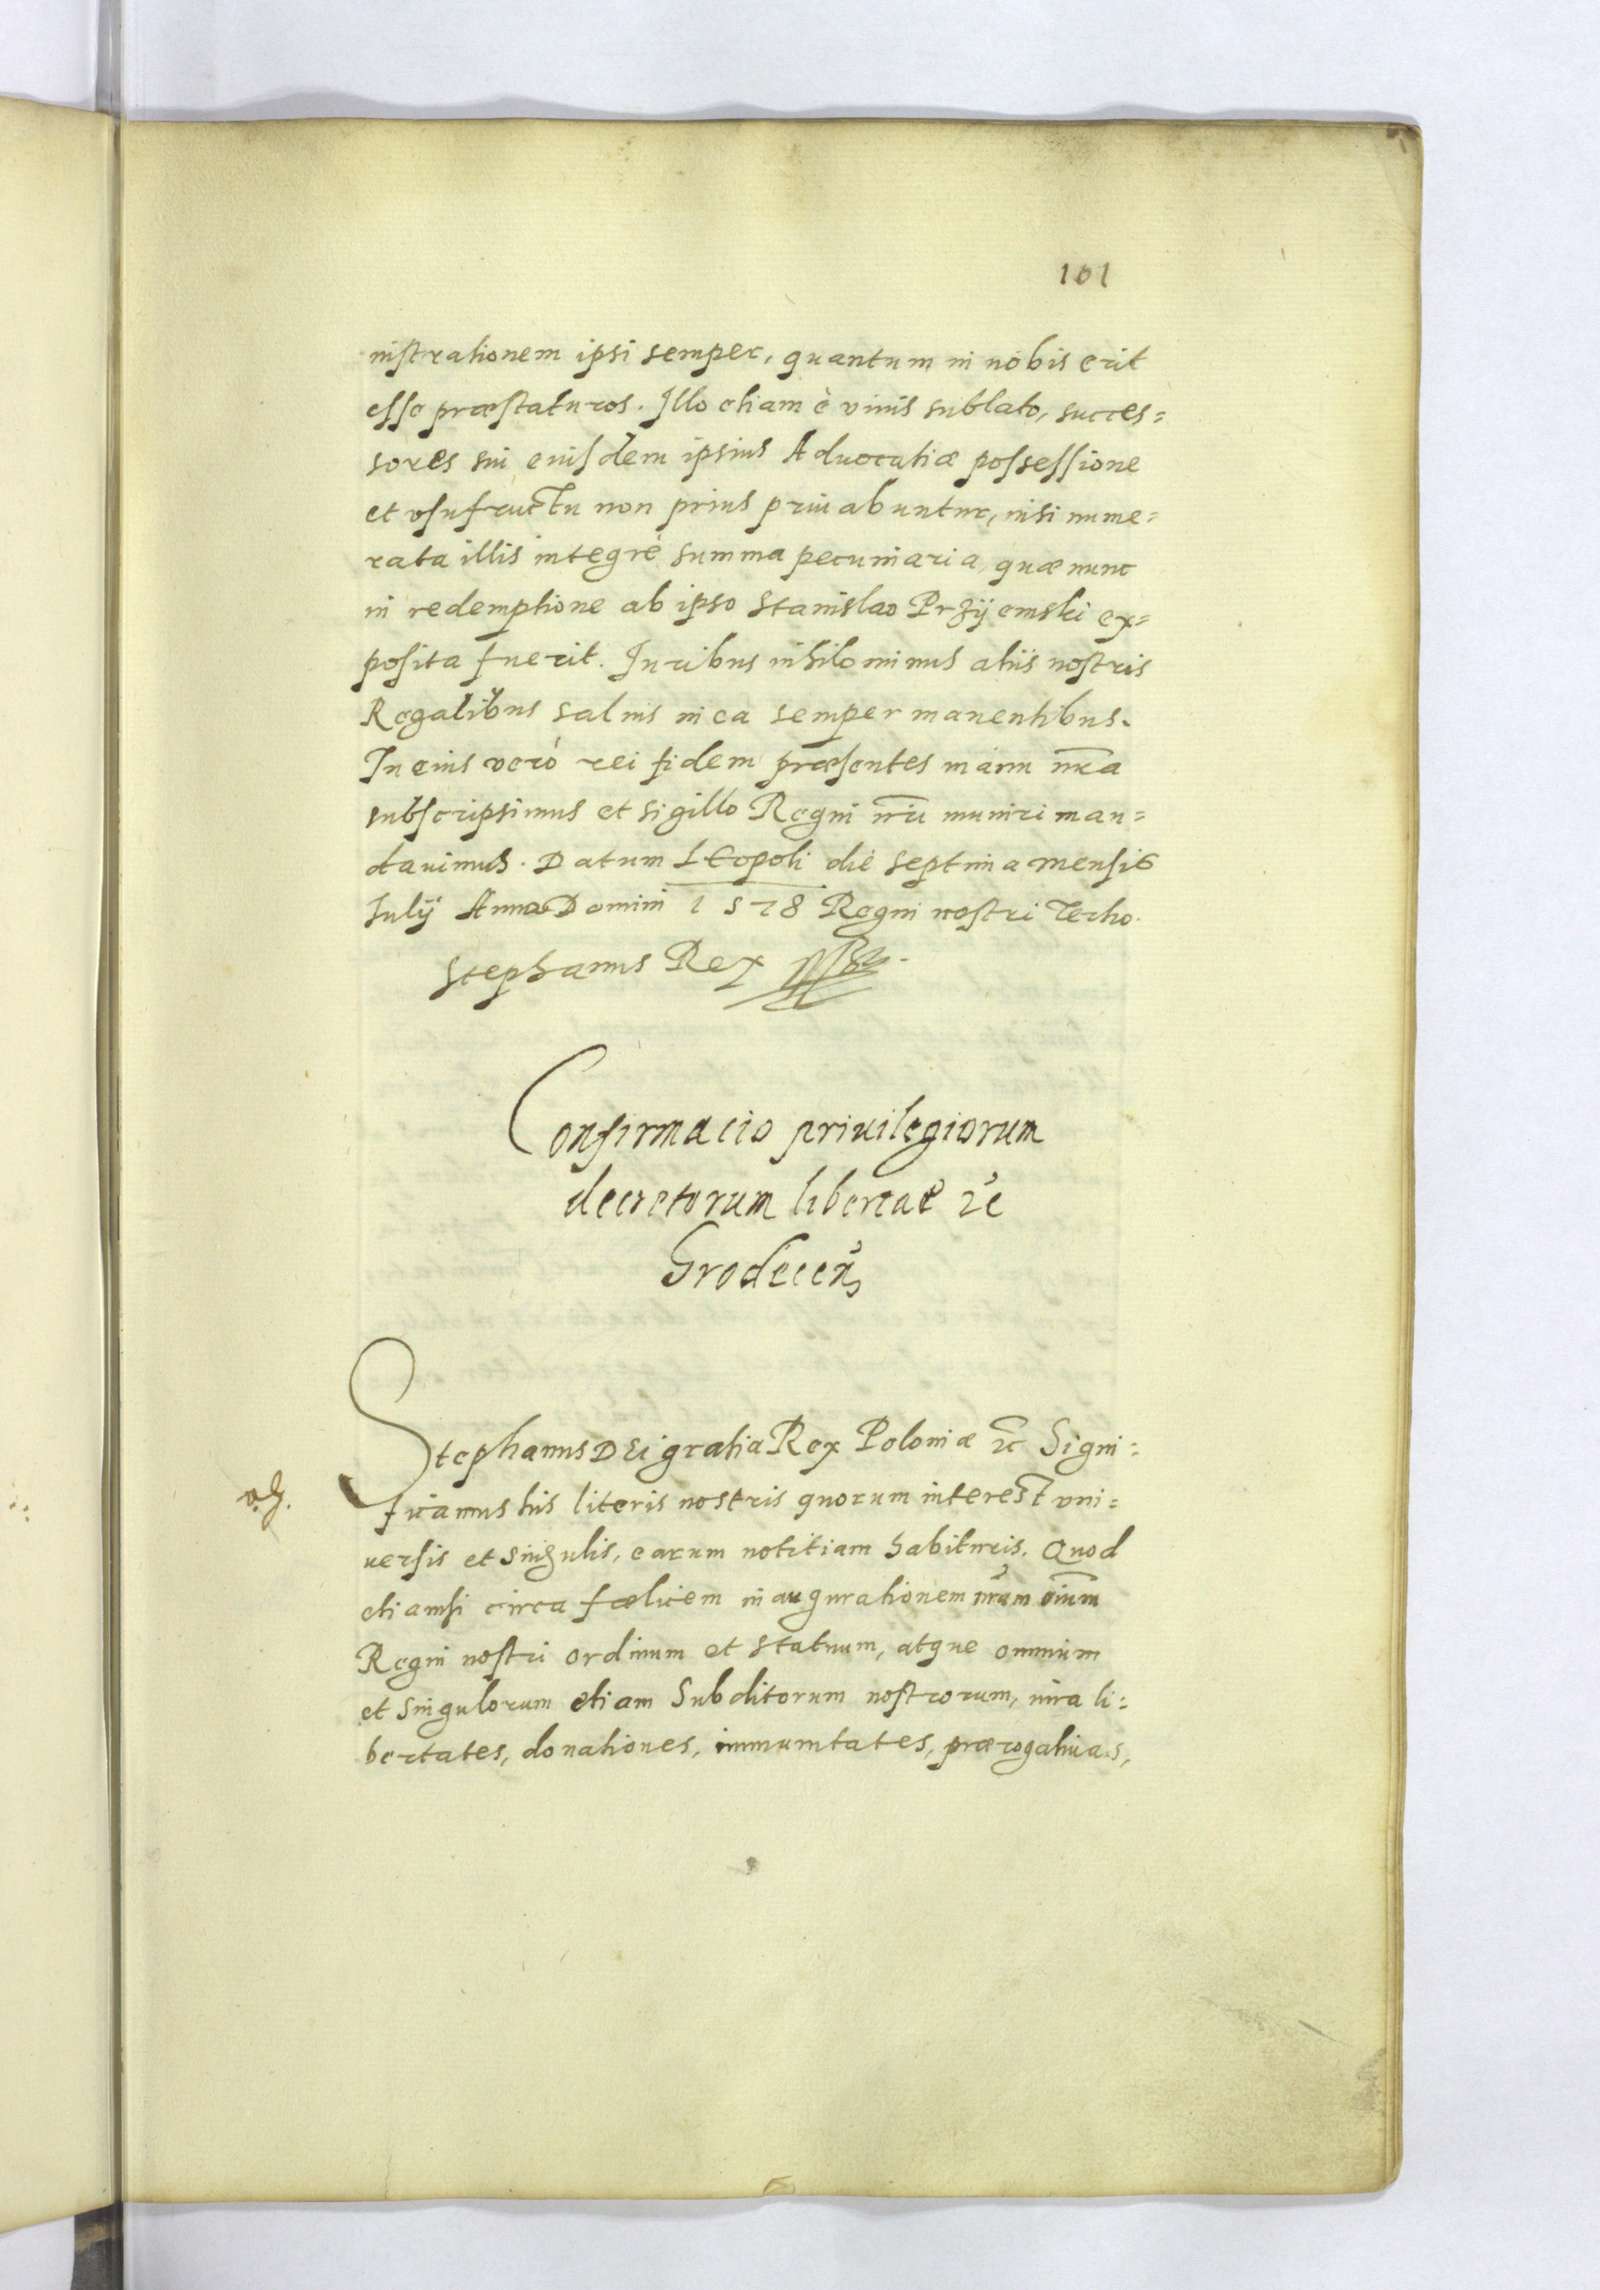 101
nistrationem ipsi semper, quantum in nobis erit
esse præstaturos. Illo etiam è viuis sublato, succes=
sores sui eiusdem ipsius Aduocatiæ possessione
et vsufructu non prius priuabuntur, nisi nume=
rata illis integrè summa pecuniaria, quæ nunc
in redemptione ab ipso Stanislao Przÿemski ex=
posita fuerit. Iuribus nihilominus aliis nostris
Regalibus saluis in ea semper manentibus.
In cuius verò rei fidem præsentes manu nr̃a
subscripsimus et sigillo Regni nr̃i muniri man=
dauimus. Datum LEopoli die septima mensis
Iulÿ Anno Domini 1578 Regni nostri Tertio.
Stephanus Rex
Confirmacio priuilegiorum
decretorum libertat ꝛc
Grodecen̄
Stephanus DEi gratia Rex Poloniæ ꝛc Signi=
ficamus his literis nostris quorum interest vni=
uersis et singulis, earum notitiam habituris. Quod
etiamsi circa fœlicem inaugurationem nr̃am oīum
Regni nostri ordinum et statuum, atque omnium
et singulorum etiam Subditorum nostrorum, iura li=
bertates, donationes, immunitates, prærogatiuas,